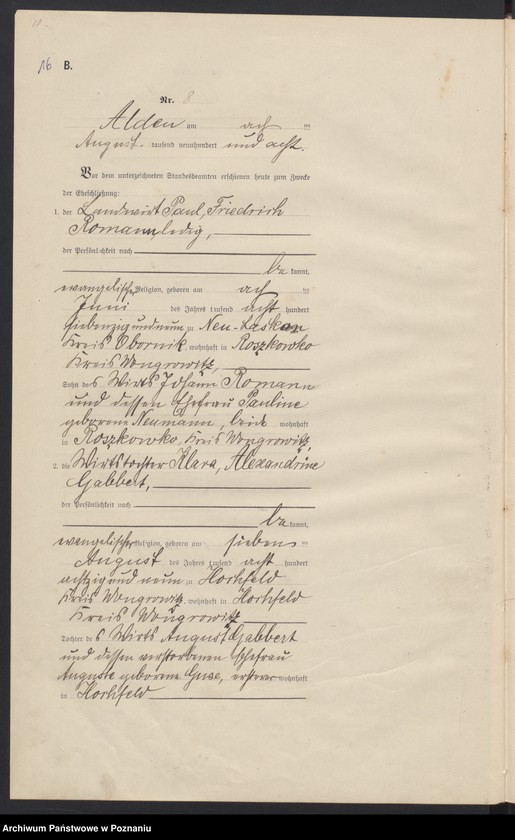 11
16 B.
Nr. 8
Alden am ach ten
August tausend neunhundert und acht.
Vor dem unterzeichneten Standesbeamten erschienen heute zum Zwecke
der Eheschließung:
1. der Landwirt Paul, Friedrich
Romann, ledig,
der Persönlichkeit nach
be kannt,
evangelischer Religion, geboren am ach ten
Juni des Jahres tausend acht hundert
siebenzig und neun zu Neu-Laskon
Kreis Obornik, wohnhaft in Roszkowko
Kreis Wongrowitz,
Sohn des Wirts Johann Romann
und dessen Ehefrau Pauline
geborene Neumann, beide wohnhaft
in Roszkowko, Kreis Wongrowitz,
2. die Wirtstochter Klara, Alexandrine
Gabbert,
der Persönlichkeit nach
be kannt,
evangelischer Religion, geboren am sieben ten
August des Jahres tausend acht hundert
achtzig und neun zu Hochfeld
Kreis Wongrowitz, wohnhaft in Hochfeld
Kreis Wongrowitz
Tochter des Wirts August Gabbert
und dessen verstorbenen Ehefrau
Auguste geborene Guse, ersterer wohnhaft
in Hochfeld
Archiwum Państwowe w Poznaniu